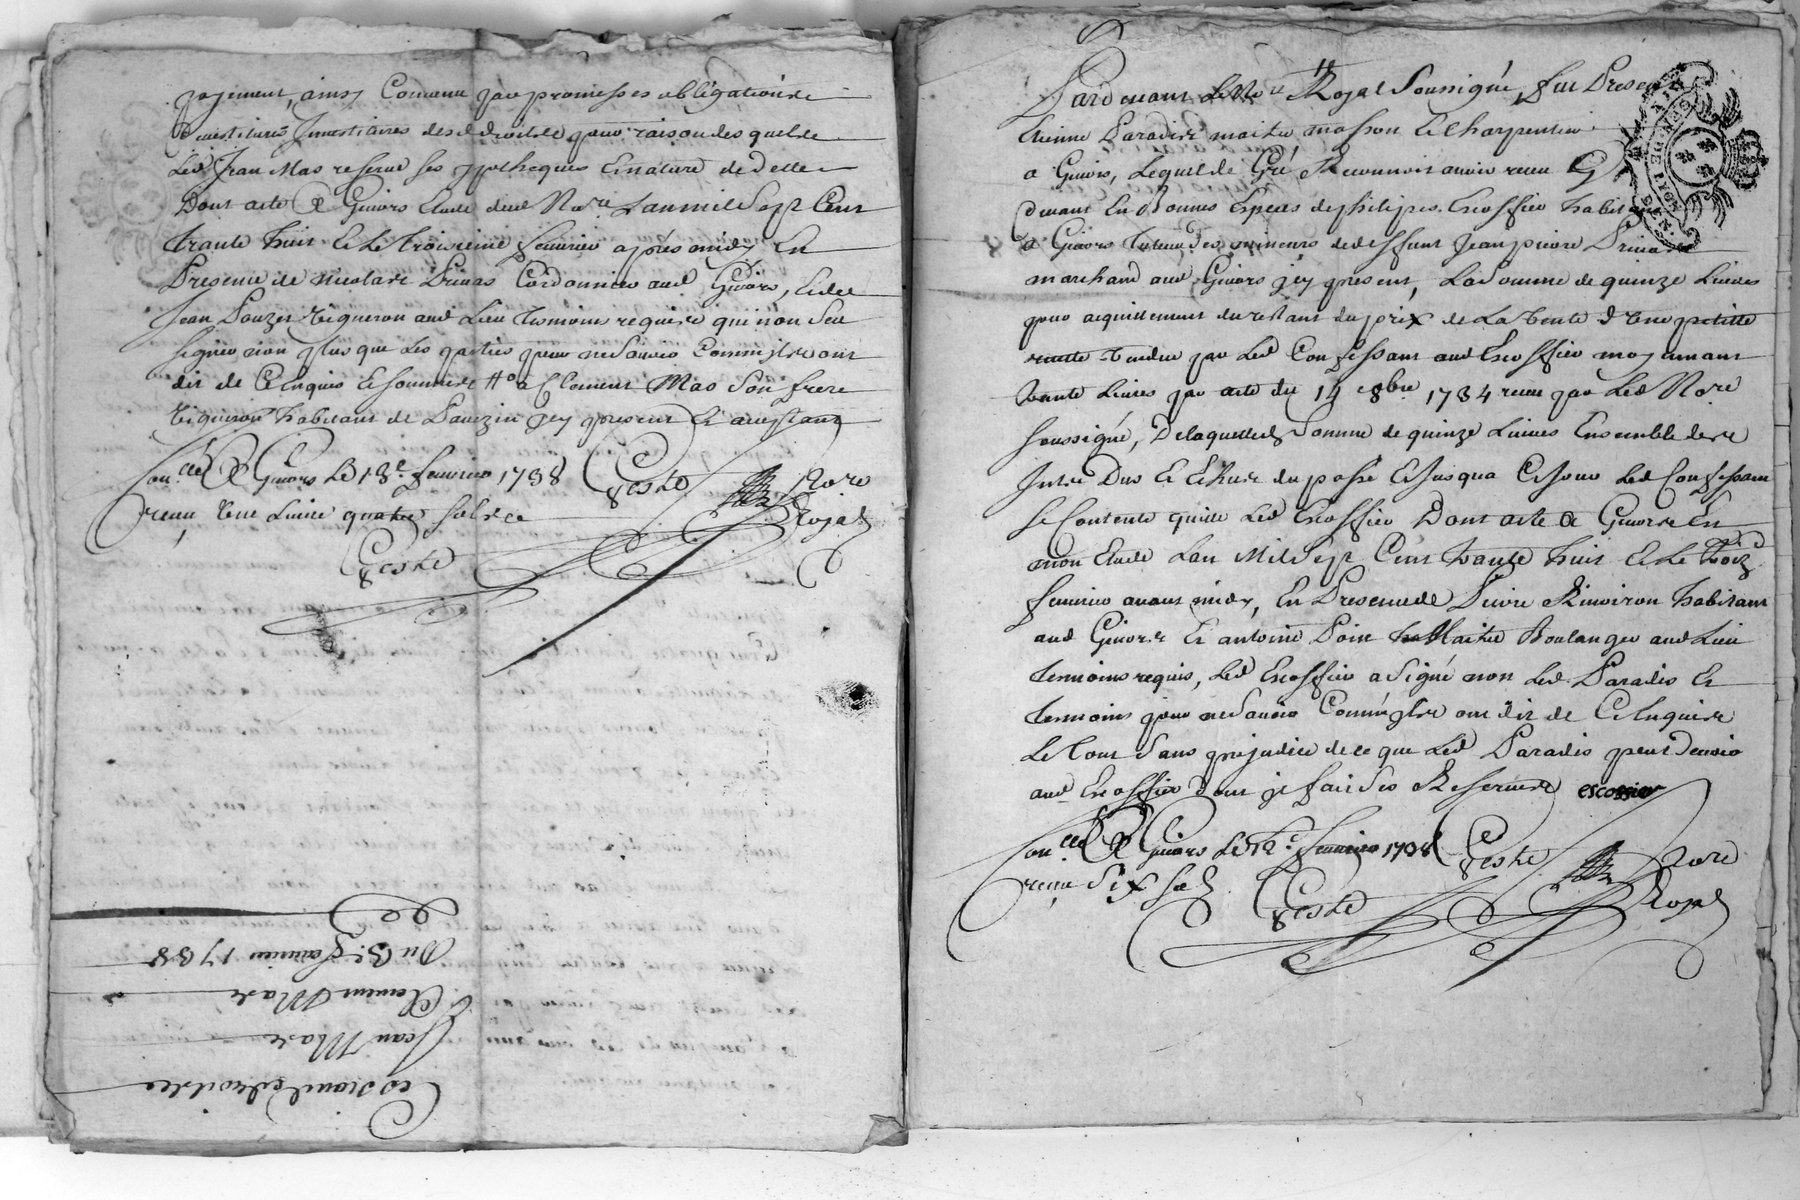 payement, ainsy Comme par promesses obligations
investitures Inventaires desd droits pour raison desquels
Led Jean Mas reserve ses ypotheques Et nature de dette
Dont acte A Givors Etude dud Nore Lan mil Sept Cent
trante huit Et Le troisieme fevrier après midy En
Presence de nicolas Primas Cordonnier aud Givors, Et de
Jean Pouzet vigneron aud Lieu temoins requis qui n'on Seu
signer non plus que Les parties pour ne Scavoir Comm'jls ont
dit de Ce Enquis Et sommés # a Clement Mas Son frere
vigneron habitant de Dauzin jcy present Et acceptant
Conllé A Givors Le 13e fevrier 1738 Geste Nore
receu Une Livre quatre sols Royal
Geste
Cession de droits
Jean Mas
Clement Mas
Du 3e fevrier 1738
Pardevant Le Nore Royal Soussigné, fut Present
Etienne Paradis maitre masson Et Charpentier
a Givors, Lequel de Gré Reconnoit avoir receu Cy
devant En Bonnes Especes de philippes Escoffier habitant
a Givors Tuteur des mineurs de deffunt Jean pierre Primat
marchand aud Givors jcy present, La Somme de quinze Livres
pour acquittement du restant du prix de La vente d'Une petitte
vendue par Led Confessant aud Escoffier moyennant
trante Livres par acte du 14 8bre 1734 receu par Led Nore
soussigné, De laquelle Somme de quinze Livres Ensemble des
Interets Dus Et Echus du passé Et Jusqua Ce Jour Led Confessant
Se Contente quitte Led Escoffier Dont acte A Givors En
mon Etude Lan Mil Sept Cent trante huit Et Le trois
fevrier avant midy, En Presence de Pierre Rimoiron habitant
aud Givors Et antoine Poin Maitre Boulanger aud Lieu
temoins requis, Led Escoffier a Signé non Led Paradis Et
temoins pour ne Scavoir Comm'jls ont dit de Ce Enquis
Le tout Sans prejudice de ce que Led Paradis peut Devoir
aud Escoffier dont jl fait Ses Reserves escoffier
Conllé A Givors Le 12e fevrier 1738 Geste Nore
receu Six sols Geste Royal
GEN DE LYON